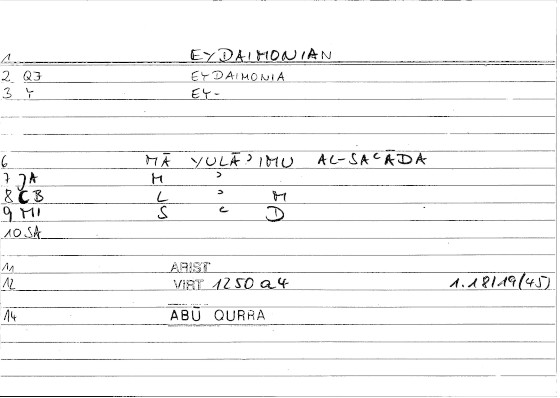 1 EYDAIMONIAN
2 QJ EYDAIMONIA
3 Y EY-
6 MĀ YULĀʾIMU AL-SAʿĀDA
7 JA M ʾ
8 CB L ʾ M
9 MI S ʿ D
10 SA
11 ARIST
12 VIRT 1250 a4 1.18/19(45)
14 ABŪ QURRA